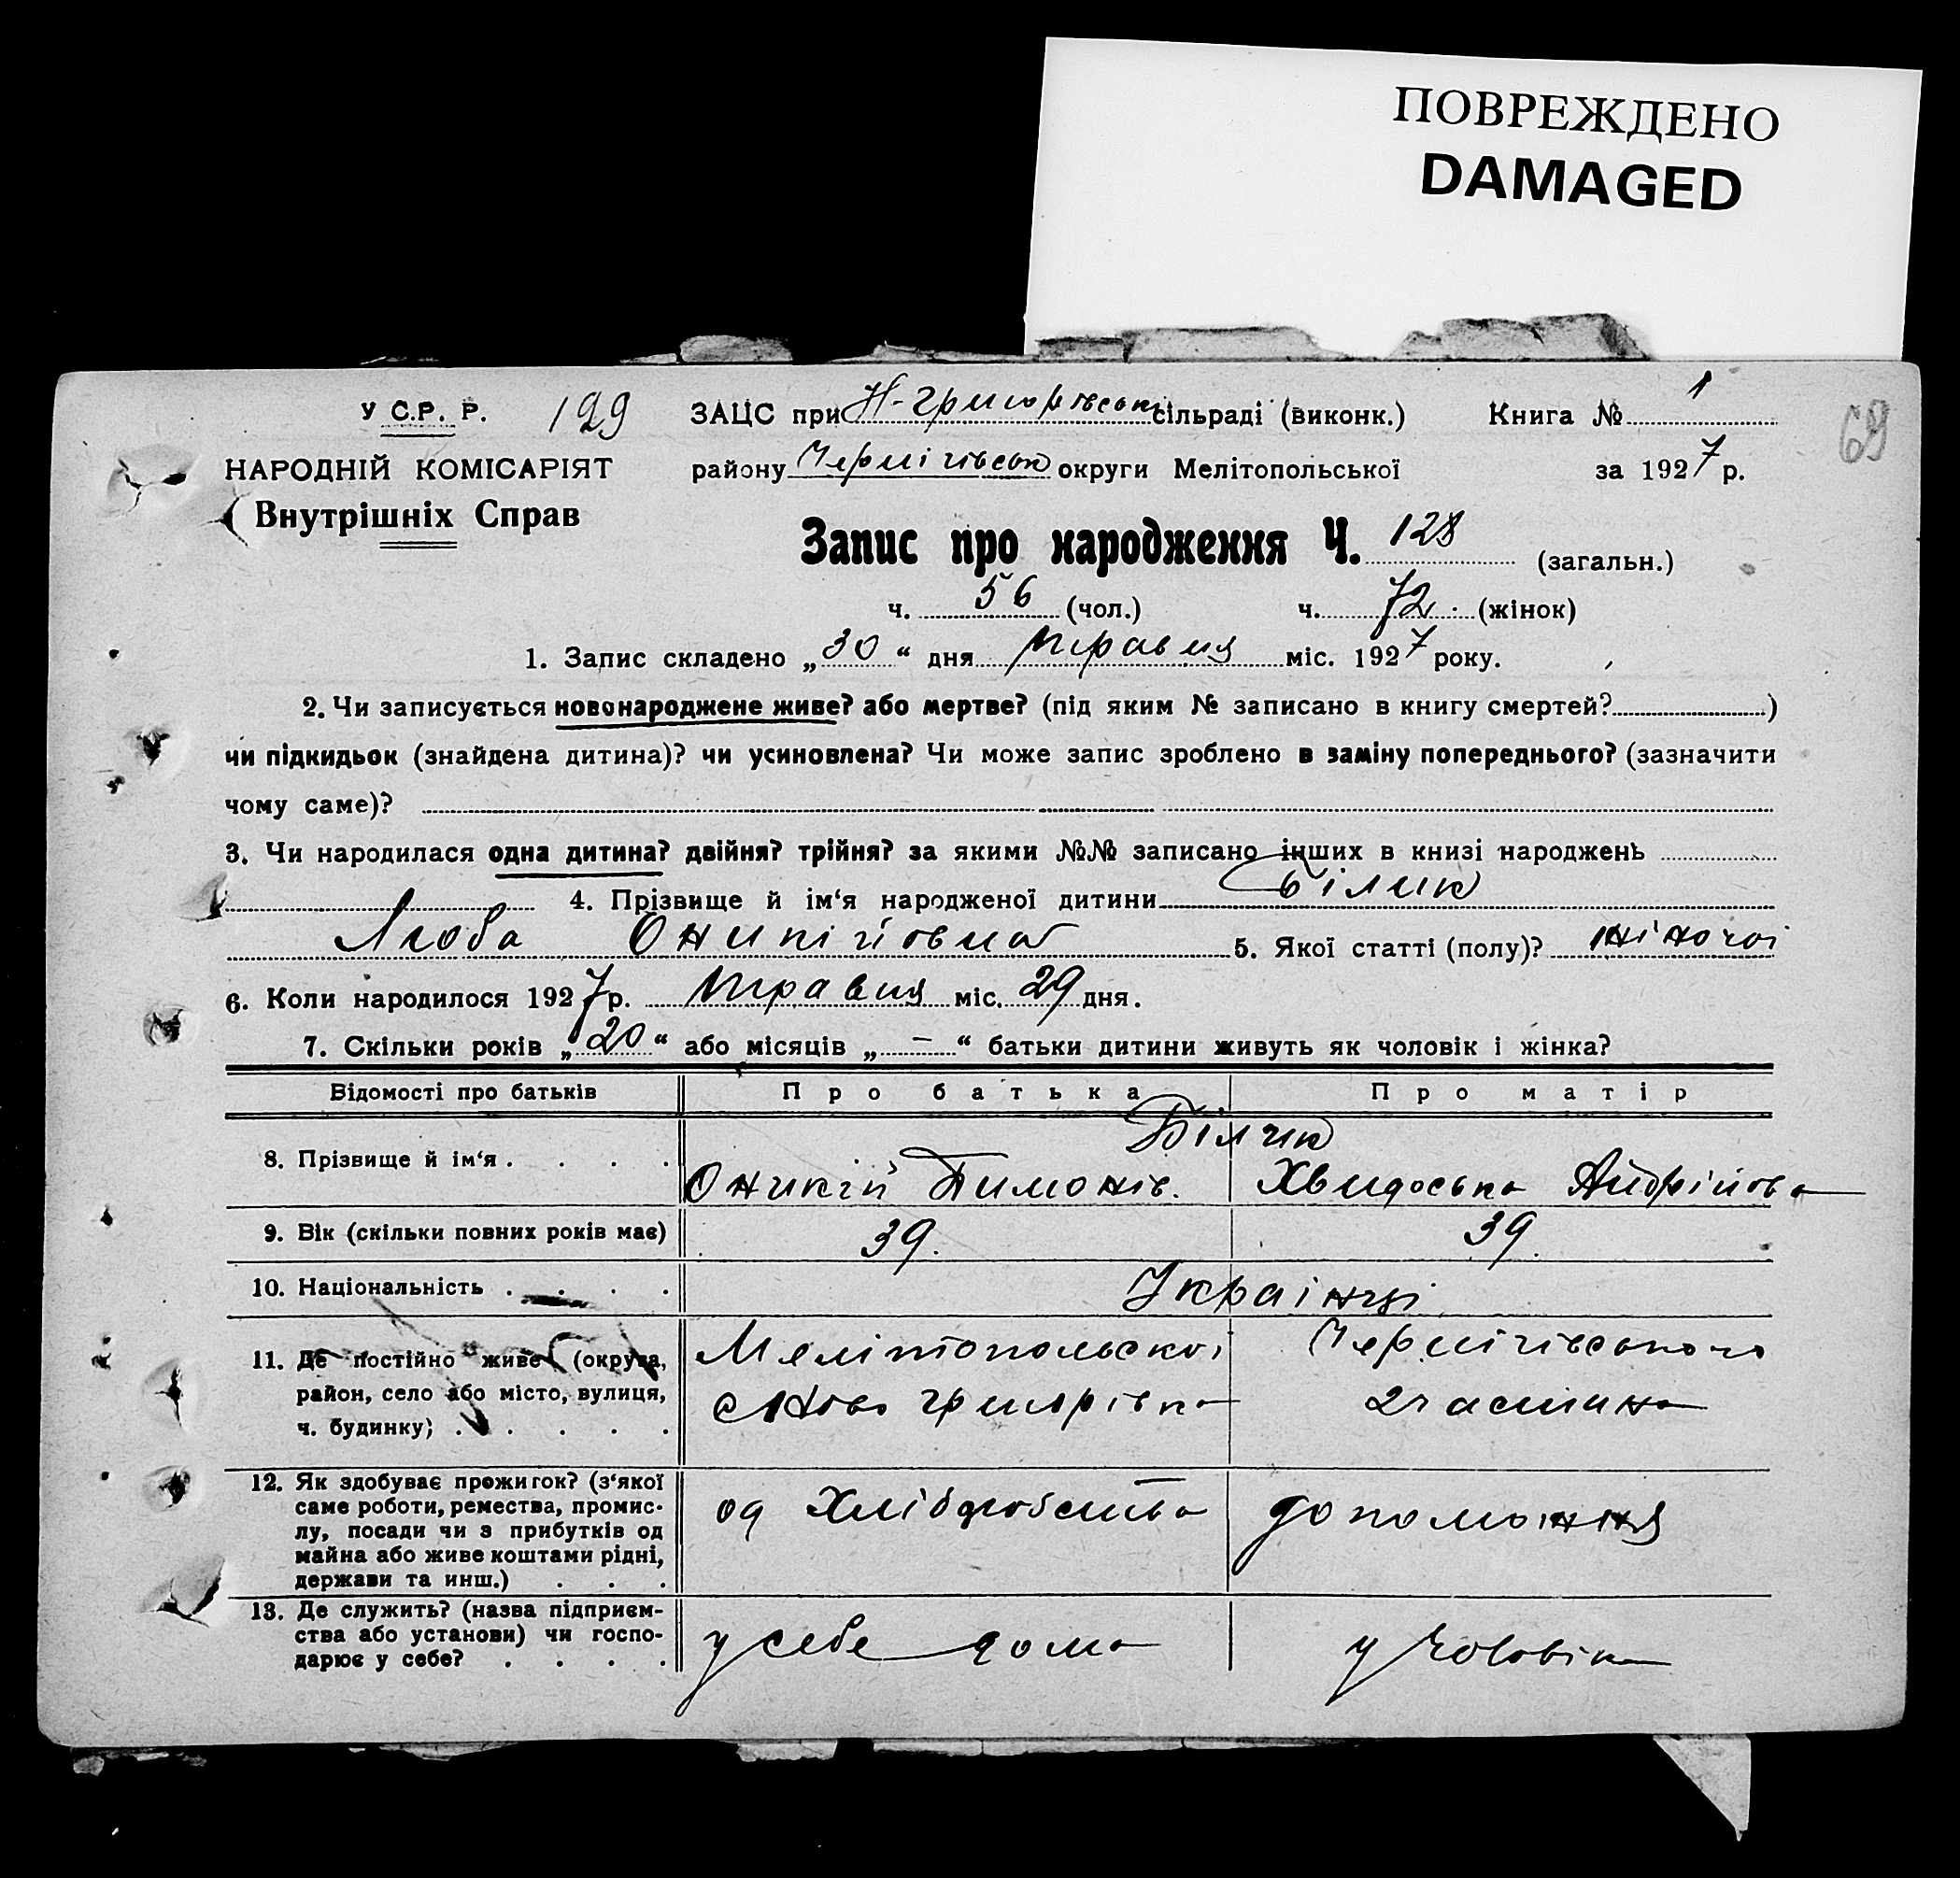 ПОВРЕЖДЕНО
DAMAGED
У С.Р. Р. 129 ЗАЦС при Н-Григорівськ сільраді (виконк.) Книга № 1
69
НАРОДНІЙ КОМІСАРІЯТ району Чернігівськ округи Мелітопольської за 1927 р.
Внутрішніх Справ
Запис про народження Ч. 128 (загальн.)
ч. 56 (чол.) ч. 72 (жінок)
1. Запис складено „30“ дня травня міс. 1927 року.
2. Чи записується новонароджене живе? або мертве? (під яким № записано в книгу смертей? )
чи підкидьок (знайдена дитина)? чи усиновлена? Чи може запис зроблено в заміну попереднього? (зазначити
чому саме)?
3. Чи народилася одна дитина? двійня? трійня? за якими №№ записано інших в книзі народжень
4. Прізвище й ім‘я народженої дитини Білик
Люба Оникійовна 5. Якої статті (полу)? жіночої
6. Коли народилося 1927 р. травня міс. 29 дня.
7. Скільки років „20“ або місяців „—“ батьки дитини живуть як чоловік і жінка?
Відомості про батьків Про батька Про матір
Білик
8. Прізвище й ім‘я . . . . Оникій Тимонів. Хвидоська Андрійова
9. Вік (скільки повних років має) 39. 39.
10. Національність . . . . Українці
11. Де постійно живе (округа, Мелітопольскої Чернігівського
район, село або місто, вулиця, с Ново Григорівка 2 частина
ч. будинку) . . . . .
12. Як здобуває прожиток? (з‘якої
саме роботи, ремества, промис- од Хліборобства допоможня
лу, посади чи з прибутків од
майна або живе коштами рідні,
держави та инш.) . . .
13. Де служить? (назва підприєм-
ства або установи) чи госпо- у себе дома у чоловіка
дарює у себе? . . . .